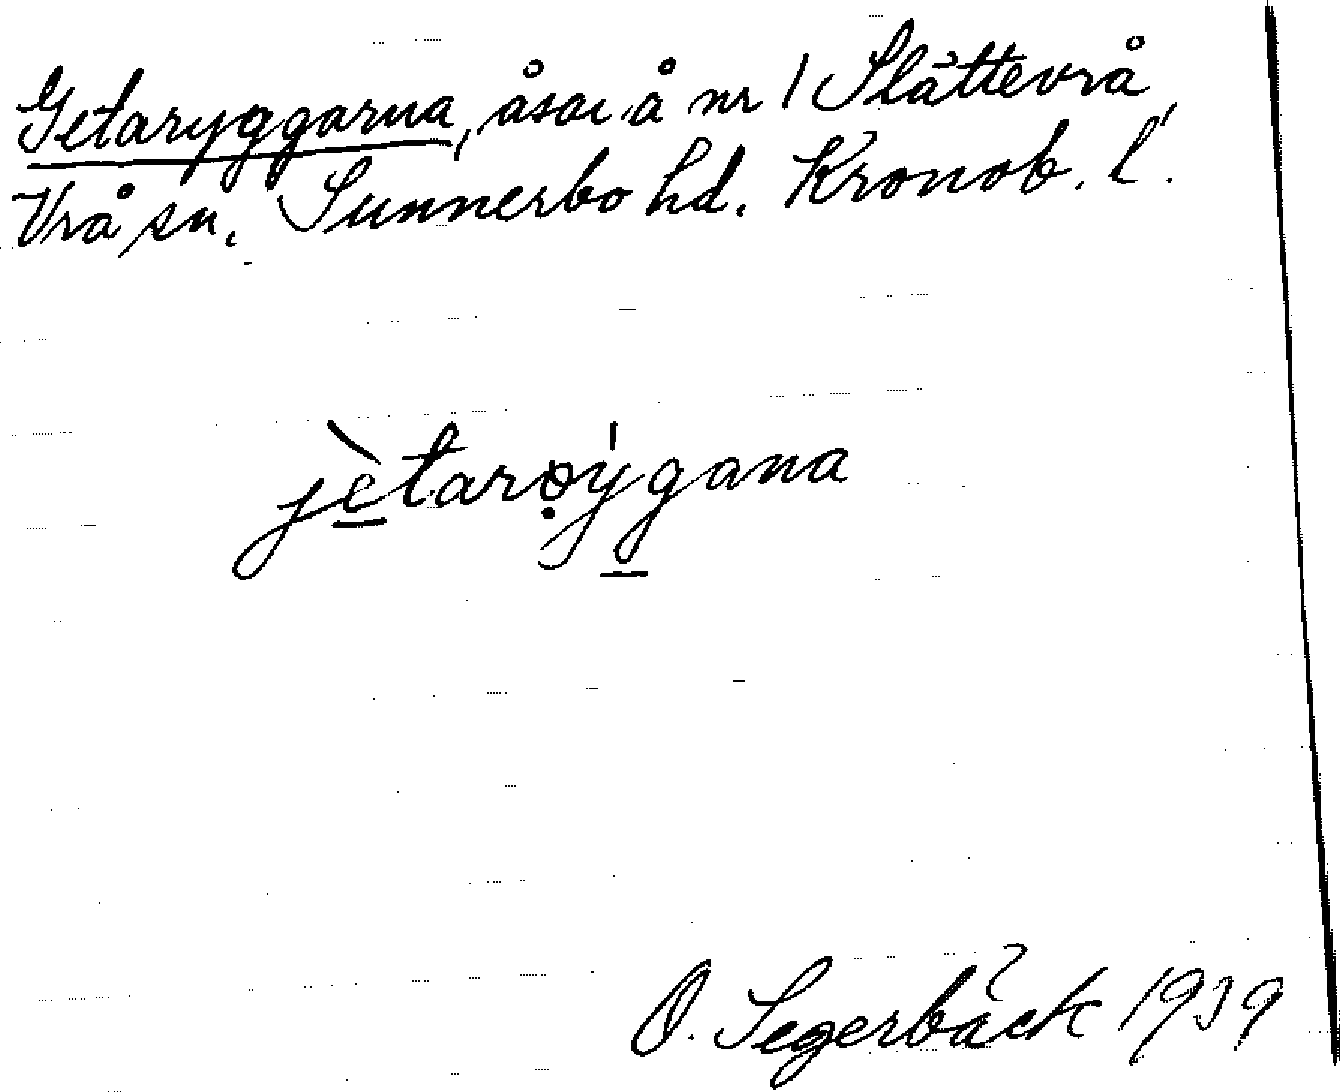 Getaryggarna, åsar å nr 1 Slättevrå,
Vrå sn. Sunnerbo hd. Kronob. l.
jètarøýgana
O. Segerbäck 1939